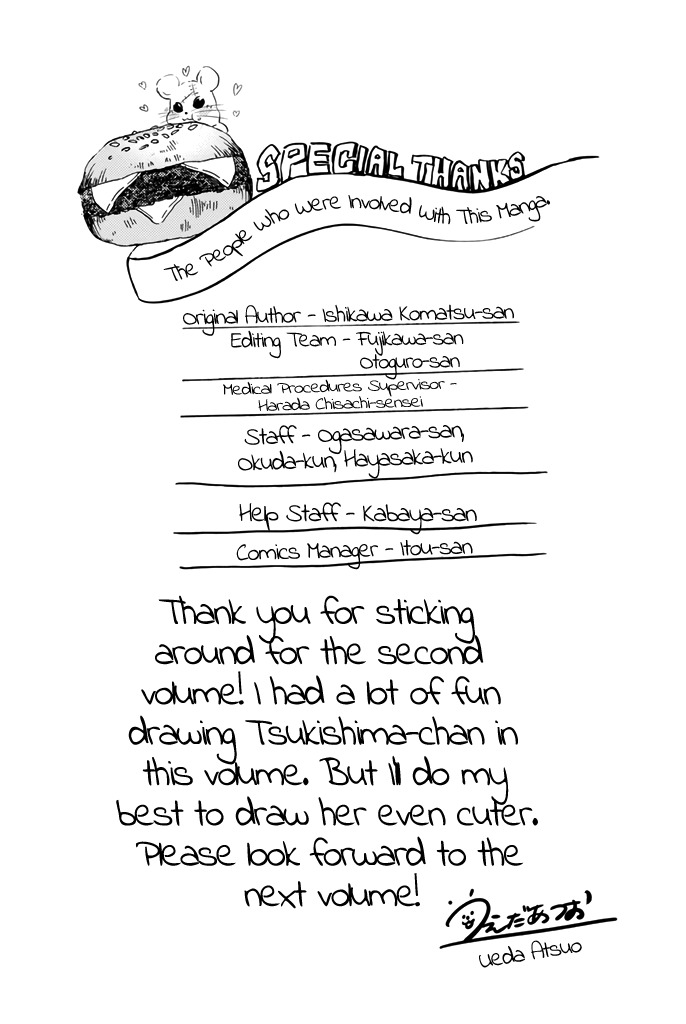 SPECIAL THANKS
The People who were Involved with This Manga.
Original Author - Ishikawa Komatsu-san
Editing Team - Fujikawa-san
Otoguro-san
Medical Procedures Supervisor -
Harada Chisachi-sensei
Staff - Ogasawara-san,
Okuda-kun, Hayasaka-kun
Help Staff - Kabaya-san
Comics Manager - Itou-san
Thank you for sticking
around for the second
volume! I had a lot of fun
drawing Tsukishima-chan in
this volume. But I'll do my
best to draw her even cuter.
Please look forward to the
next volume!
うえだあつお
Ueda Atsuo